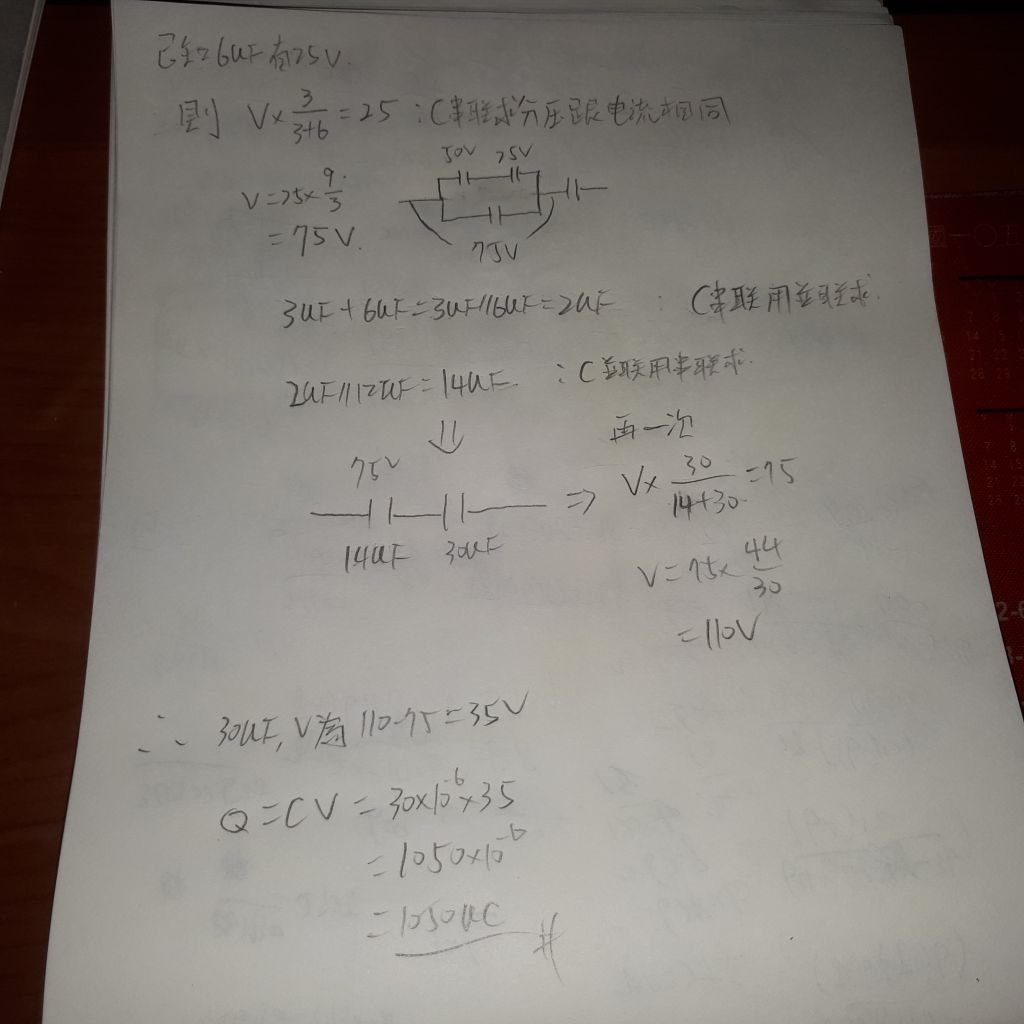 已知6uF有25V.
則 V×3/(3+6)=25 ∵C串联求分压跟电流相同
50V 25V
V=25×9/3
=75V.
75V
3uF+6uF=3uF//6uF=2uF ∵C串联用並联求.
2uF//12uF=14uF. ∵C並联用串联求.
⇓
再一次
75V
14uF 30uF
⇒ V×30/(14+30)=75
V=75×44/30
=110V
∴ 30uF,V為110-75=35V
Q=CV=30×10^-6×35
=1050×10^-6
=1050uC #